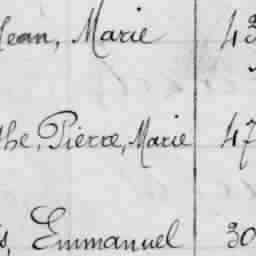 Jean, Marie 43
the, Pierre, Marie 47
s, Emmanuel 30